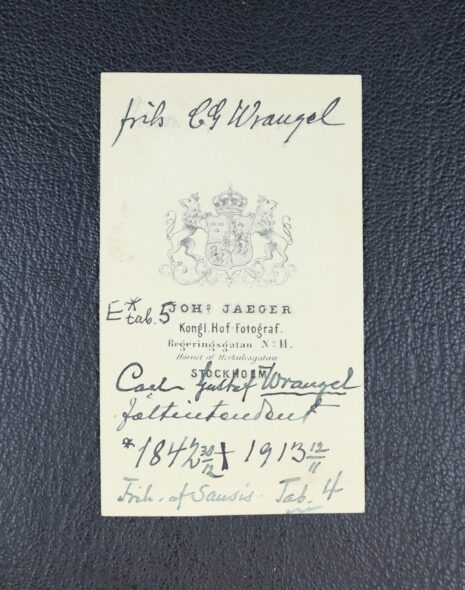 frih CG Wrangel
E* tab. 5
JOHS JAEGER
Kongl. Hof-fotograf.
Regeringsgatan No 11.
Hörnet af Herkulesgatan
STOCKHOLM.
Carl Gustaf Wrangel
fältintendent
*1842 30/12 † 1913 12/11
Frih. af Sausis. Tab. 4